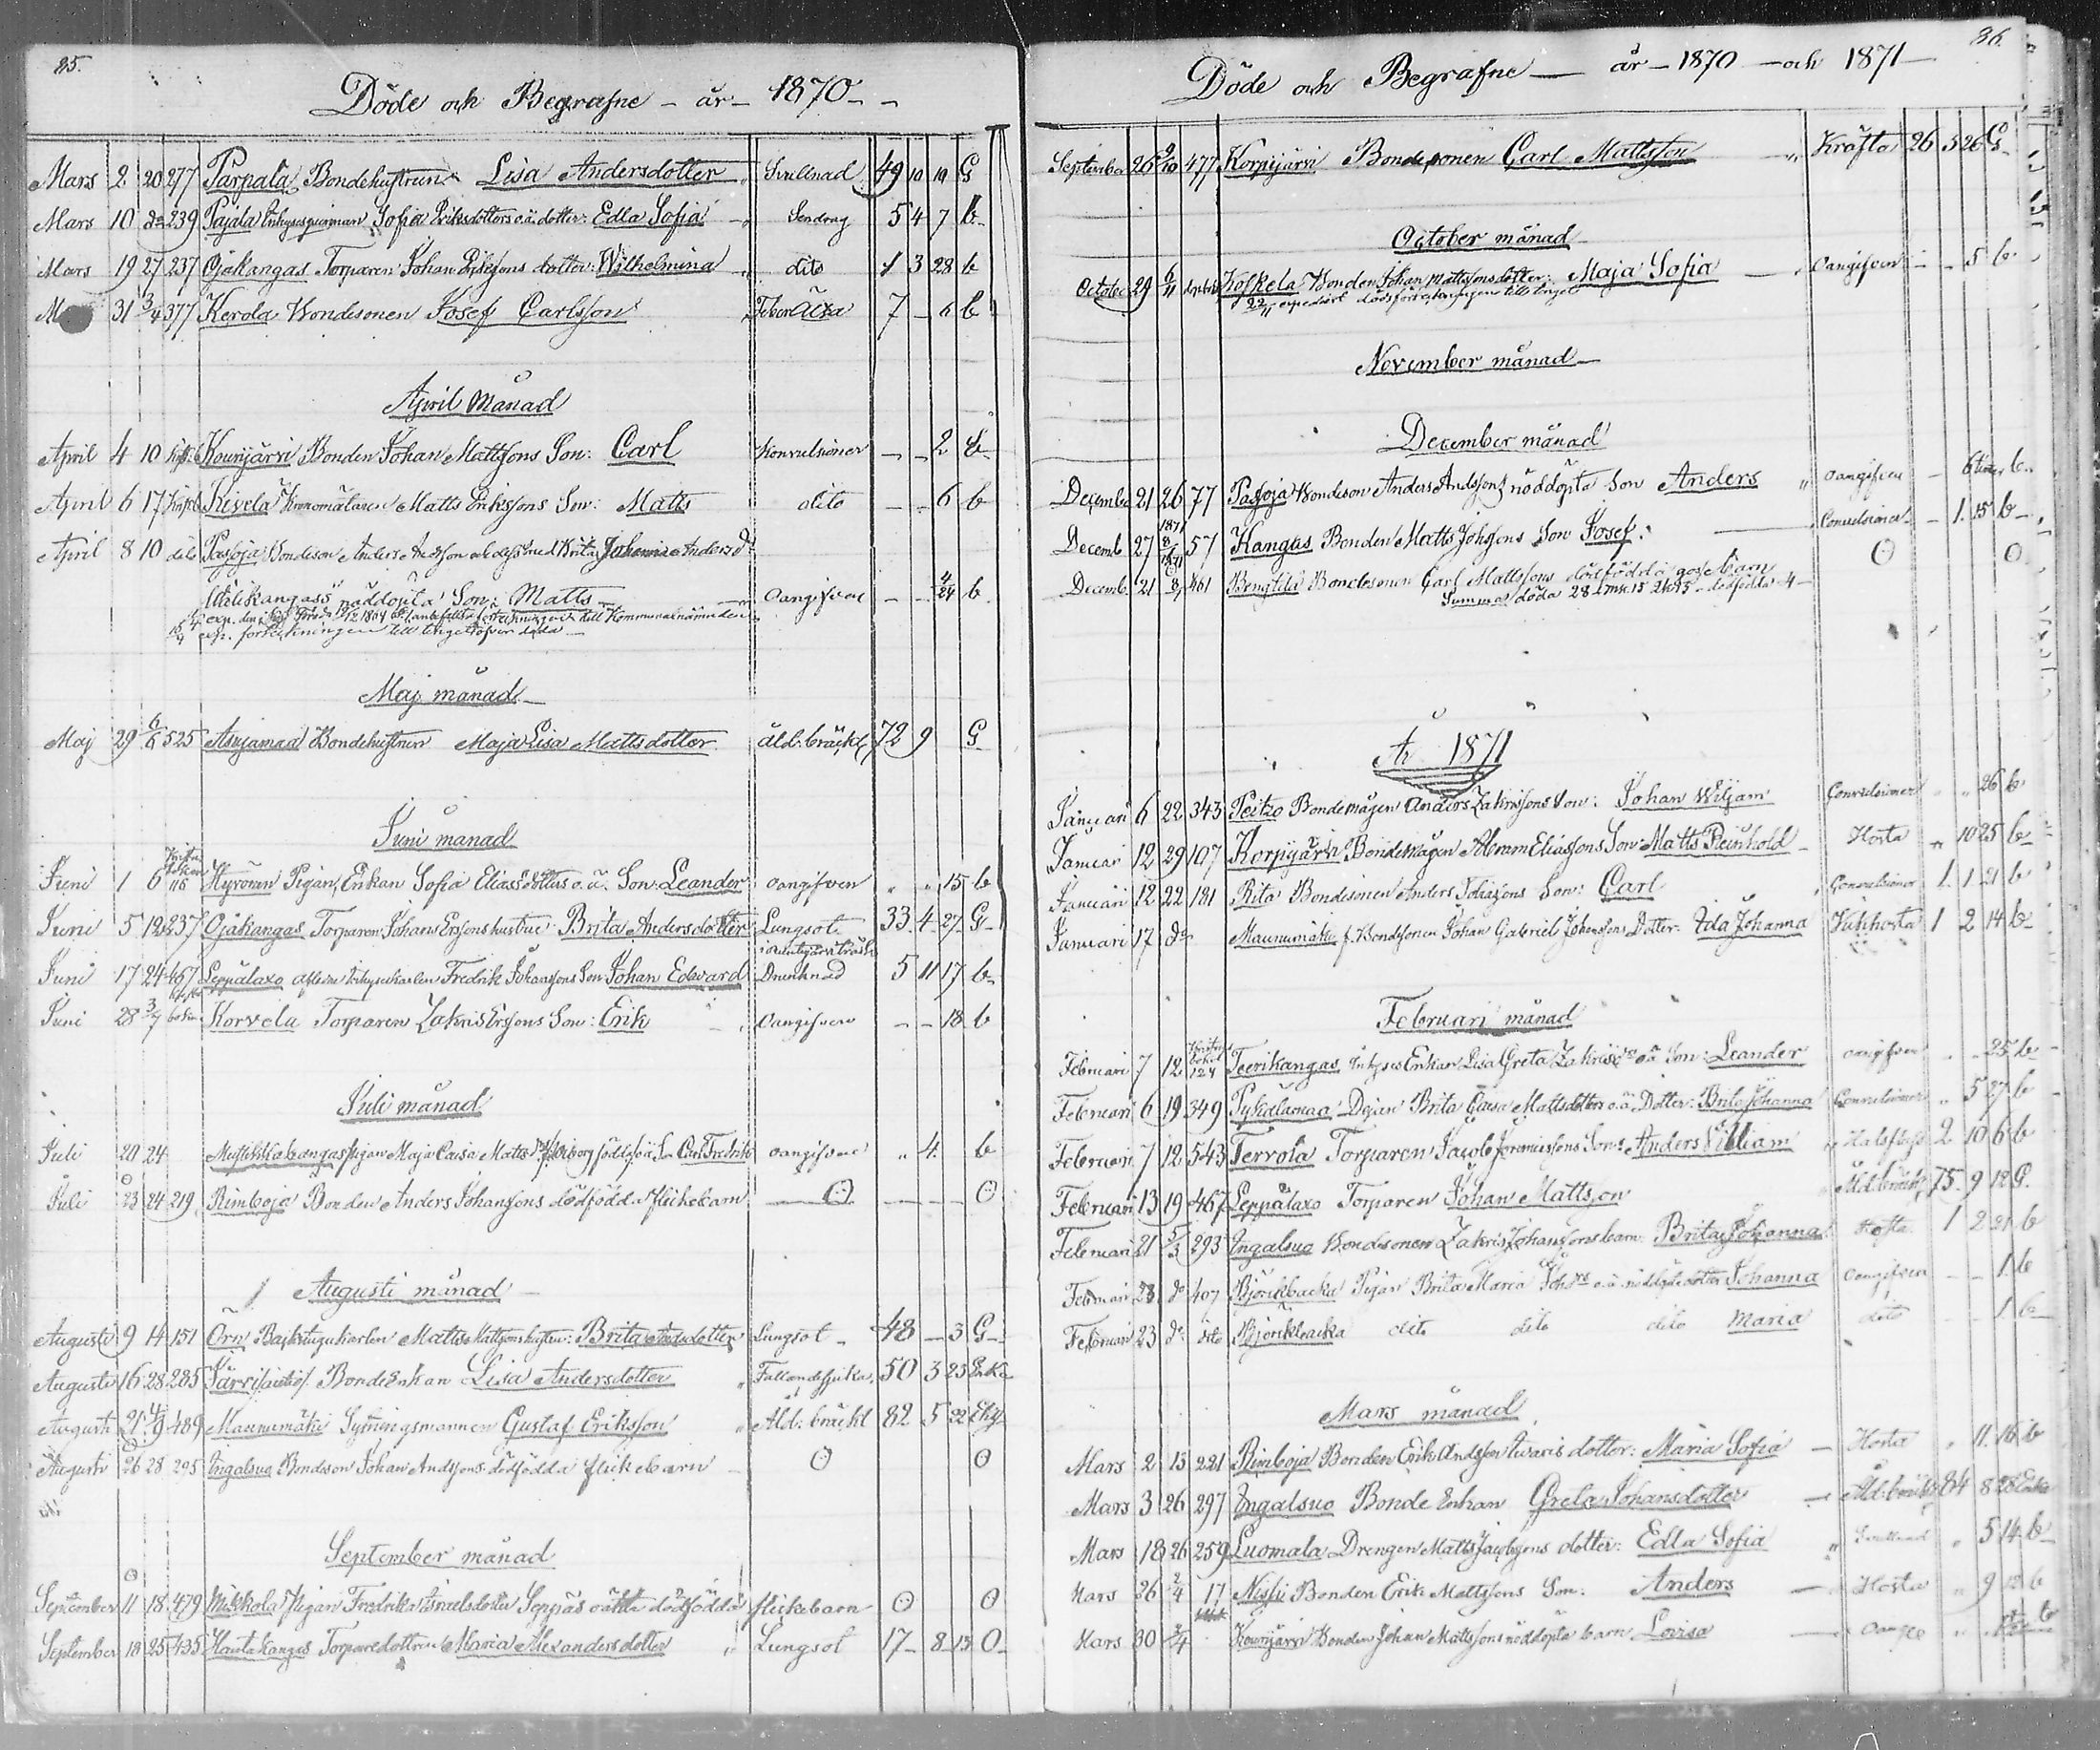 85.
Döde och Begrafne - år - 1870 - -
Mars 2 20 277 Parpala Bondehustrun Lisa Andersdotter Svullnad 49 10 19 G
Mars 10 do 239 Pajala Sofia Eriksdotters o.ä. dotter: Edla Sofia 5 4 7 b
Mars 19 27 237 Ojakangas Torparen Johan Erikssons dotter: Wilhelmina dito 1 3 28 b
M 31 3/4 377 Kerola Bondesonen Josef Carlsson 7 - 6 b
April månad
April 4 10 Bonden Johan Mattssons Son: Carl Konvulsioner - - 2 b
April 6 17 Kivelä Matts Erikssons Son: Matts dito - - 6 b
April 8 10 dito Pasoja Bondeson Anders Andsson och dess med Brita Johanna Andersdr
nöddöpta Son: Matts Oangifven - - 4/24 b
Maj månad
Maj 29 6/6 525 Bondehustrun Maja Lisa Mattsdotter åld: bräckl 72 9 G
Juni månad
Juni 1 6 118 Pigan, Enkan Sofia Eliasdotters o.ä. Son: Leander oangifven " " 15 b
Juni 5 12 237 Ojakangas Torparen Johan Erssons hustru: Brita Andersdotter Lungsot 33 4 27 G
Juni 17 24 467 Leppälaxo Fredrik Johanssons Son: Johan Edward Drunknad 5 11 17 b
Juni 28 3/7 Korvela Torparen Zakris Erssons Son: Erik Oangifven - - 18 b
Juli månad
Juli 20 24 pigan Maja Caisa Matts o.ä. S. Carl Fredrik oangifven " 4 b
Juli 23 24 219 Rimboja Bonden Anders Johanssons dödfödda flickebarn
Augusti månad
Augusti 9 14 151 Örn Matts Mattssons hustru: Brita Andersdotter Lungsot 48 - 3 G
Augusti 16 28 285 Järvi Bonde Enkan Lisa Andersdotter Fallandesjuka 50 3 23 Enka
Augusti 21 4/9 489 Maunumäki Sytningsmannen Gustaf Eriksson Åld: bräckl 82 5 22
Augusti 26 28 295 Ingalsuo Bondeson Johan Andssons dödfödda flickebarn
September månad
September 11 18 479 Mikkola Pigan Fredrika Israelsdotter Seppäs oäkta dödfödda flickebarn
September 18 25 435 Hautakangas Torparedottren Maria Alexandersdotter Lungsot 17 8 13 O
86.
Döde och Begrafne — år - 1870 - och 1871 -
September 26 9/10 477 Korpijärvi Bondesonen Carl Mattsson Kräfta 26 5 26 G
October månad
October 29 6/11 Koskela Bonden Johan Mattssons dotter: Maja Sofia Oangifven - - 5 b
November månad
December månad
December 21 26 77 Pasoja Bondeson Anders Andssons nöddöpta Son Anders oangifven - 6 tim b
Decemb 27 1871 8/1 57 Kangas Bonden Matts Johssons Son Josef: Convulsioner - 1 15 b
Decemb 21 461 Bondesonen Carl Mattssons dödfödda gossebarn
Summa döda 28 dödfödda 4
År 1871
Januari 6 22 343 Peitzo Bondemågen Anders Zakrissons Son: Johan Wiljam Convulsioner " " 26 b
Januari 12 29 107 Korpijärvi Bondemågen Abram Eliassons Son Matts Reinhold Hosta " 10 25 b
Januari 12 22 181 Rita Bondesonen Anders Tobiassons Son: Carl Convulsioner 1 1 21 b
Januari 17 do Maunumäki f. Bondesonen Johan Gabriel Johanssons Dotter: Ida Johanna Kikhosta 1 2 14 b
Februari månad
Februari 7 12 124 Teerikangas Inhyses Enkan Lisa Greta Zakrisdrs oä Son: Leander oangifven - - 25 b
Februari 6 19 349 Pykälämaa Dejan Brita Caisa Mattsdotters o.ä. Dotter: Brita Johanna Convulsioner " 5 27 b
Februari 7 12 543 Terrola Torparen Jacob Jeremiassons Son: Anders Villiam 2 10 6 b
Februari 13 19 467 Leppälaxo Torparen Johan Mattsson Åld: bräckl 75 9 12 G
Februari 21 5/3 293 Ingalsuo Bondesonen Zakris Johanssons barn Brita Johanna Hosta 1 2 21 b
Februari 23 do 407 Björkbacka Pigan Brita Maria o.ä. nöddöpta dotter Johanna oangifven - - 1 b
Februari 23 do dito Björkbacka dito dito dito Maria dito - - 1 b
Mars månad
Mars 2 13 221 Rimboja Bonden Erik Andsson dotter: Maria Sofia - Hosta " 11 16 b
Mars 3 26 297 Ingalsuo Bonde Enkan Greta Johansdotter Åld: bräckl 84 8 28 Enka
Mars 18 26 259 Luomala Drengen Matts Jacobssons dotter: Edla Sofia Svullnad " 5 14 b
Mars 26 2/4 17 Bonden Erik Mattssons Son: Anders Hosta " 9 12 b
Mars 30 2/4 Bonden Johan Mattssons nöddöpta barn Lovisa